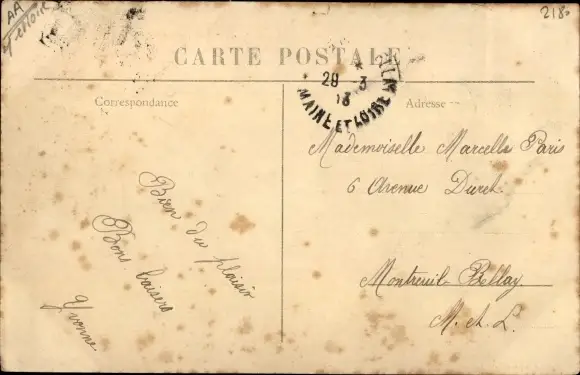 AA
218.
CARTE POSTALE
29 - 3
13
MAINE ET LOIRE
Correspondance
Adresse
Bien du plaisir
Bons baisers
Yvonne
Mademoiselle Marcelle Paris
6 Avenue Duret
Montreuil-Bellay
M. et. L.